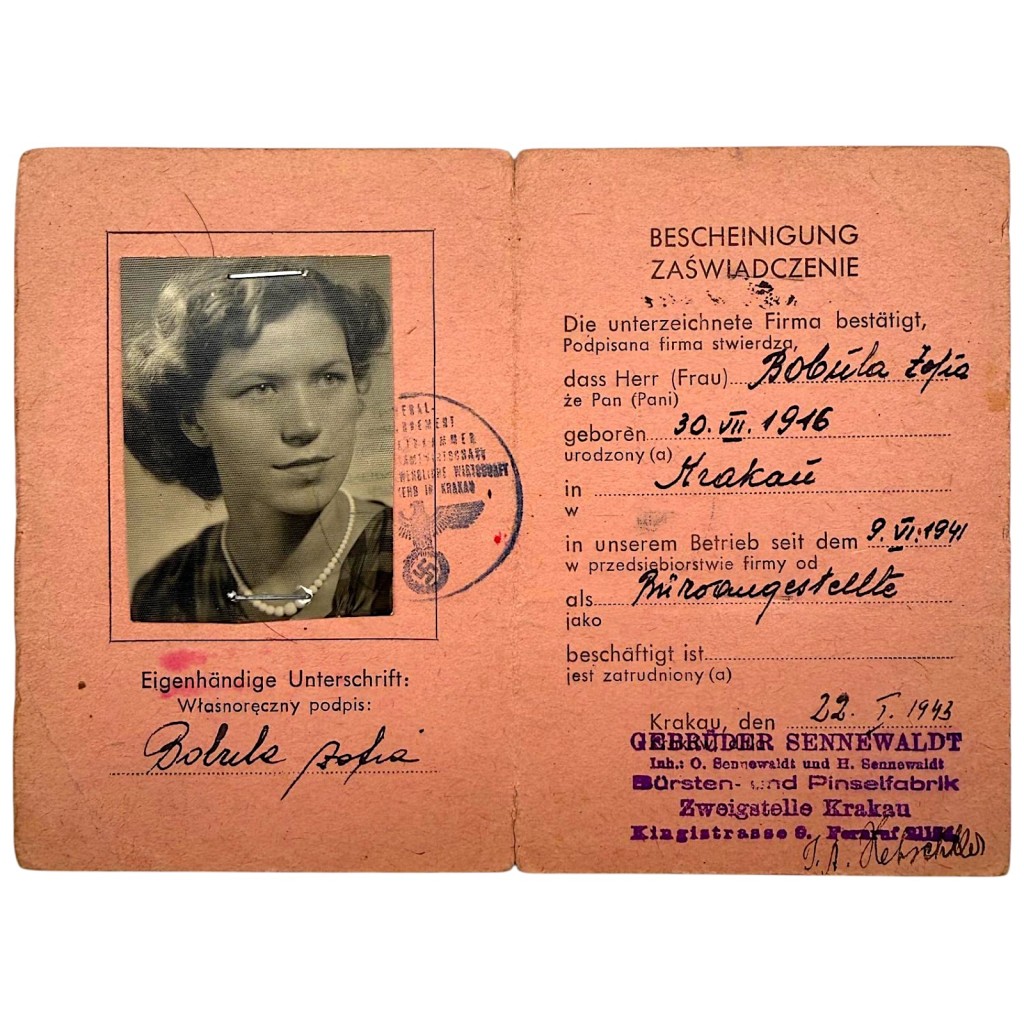 ERAL-
ERNEMENT
KAMMER
WERBLICHE WIRTSCHAFT
IN KRAKAU
Eigenhändige Unterschrift:
Własnoręczny podpis:
Bobula Zofia
BESCHEINIGUNG
ZAŚWIADCZENIE
Die unterzeichnete Firma bestätigt,
Podpisana firma stwierdza,
dass Herr (Frau) Bobula Zofia
że Pan (Pani)
geboren 30. VII. 1916
urodzony (a)
in Krakau
w
in unserem Betrieb seit dem 9. VI. 1941
w przedsiębiorstwie firmy od
als Büroangestellte
jako
beschäftigt ist
jest zatrudniony (a)
Krakau, den 22. I. 1943
GEBRÜDER SENNEWALDT
Inh.: O. Sennewaldt und H. Sennewaldt
Bürsten- und Pinselfabrik
Zweigstelle Krakau
Kingistrasse 6. Fernruf